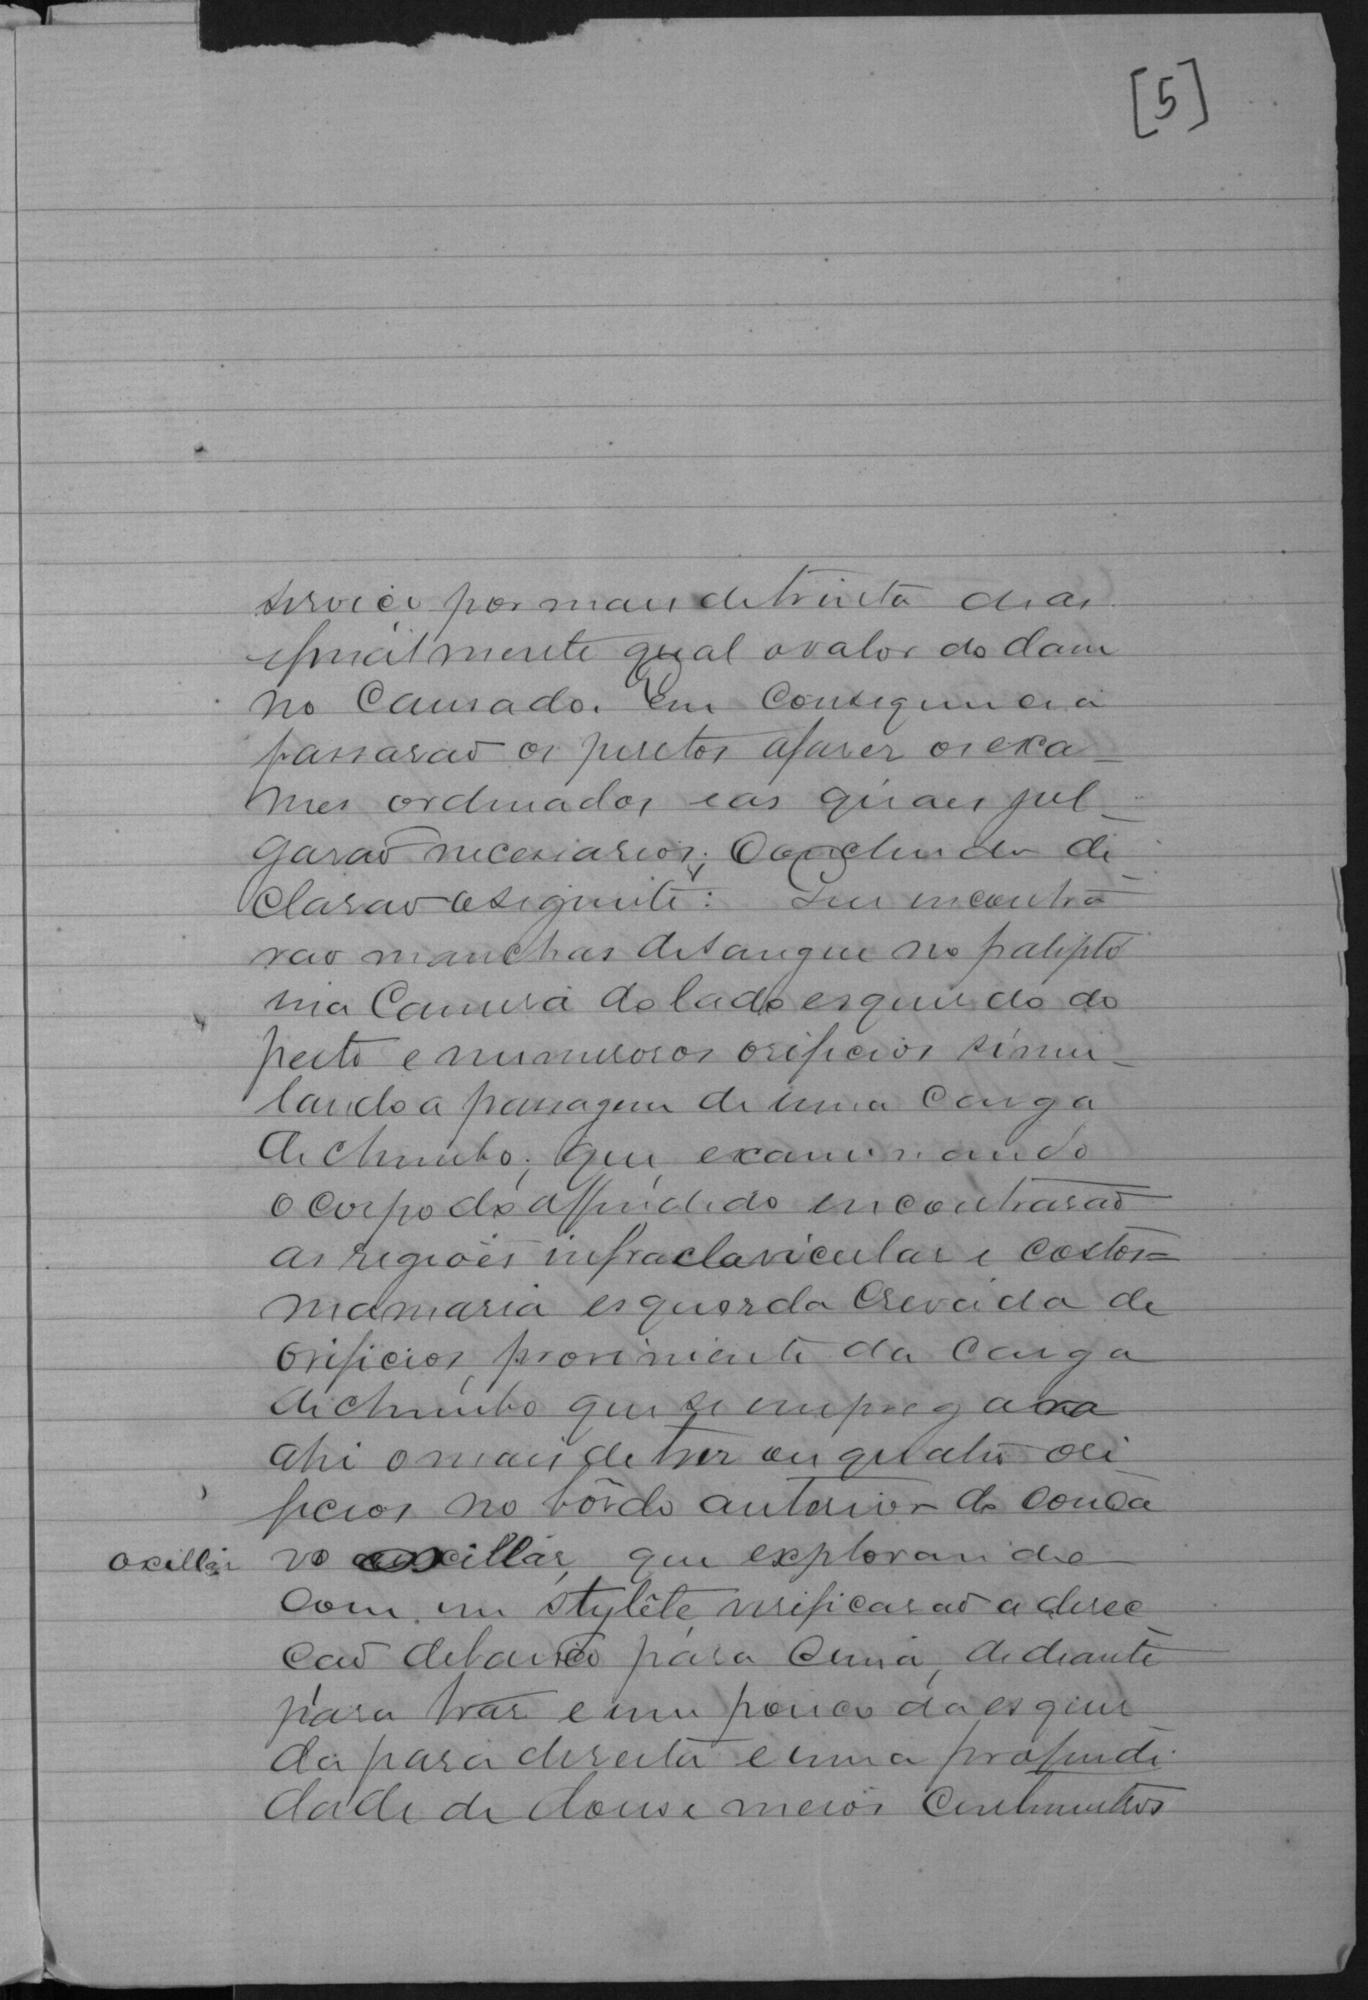 [5]
serviço por mais de trinta dias
efinalmente qual ovalor do dam
no Causado. Em Consequencia
passarão os peritos afaser osexa
mes ordinados eas quaes jul
garão necessarios; Concluindo di
clarão oseguinte: Que incontrá
rão manchas desangue no paliptó
ma Camisa dolado esquerdo do
peito e numerosos orificios simu
lando a passagem de uma Carga
de chumbo; que, examinando
ocorpo do offindido encontrarão
as regiões infraclavicular e costos=
mamaria esquerda Crevada de
orificios, proviniente da Carga
dechumbo que se impregava
ahi omais de tres ou quatro ori
ficios no bôrdo anterior do conca
axillar vo axillar, que explorando
com um stylête, virificarão a direc
cão debaixo para Cima, dediante
para tras e um pouco da esquer
da para direita e uma profundi
dade de dous e meios Centimetros